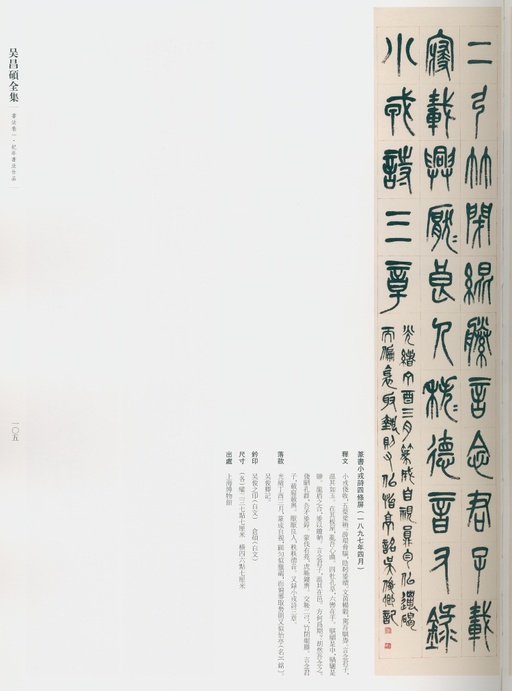 二弓竹閉緄縢言念君子載
寢載興厭厭良人秩秩德音又錄
小戎詩三章
光緒丁酉三月篆成自視
而偏袤取埶則又似怡亭銘吳俊卿記
篆書小戎詩四條屏（一八九七年四月）
釋文　小戎俴收，五楘梁輈。游環脅驅，陰靷鋈續。文茵暢轂，駕我騏馵。言念君子，
溫其如玉。在其板屋，亂我心曲。四牡孔阜，六轡在手。騏騮是中，騧驪是
驂。龍盾之合，鋈以觼軜。言念君子，溫其在邑。方何爲期？胡然我念之。
俴駟孔群，厹矛鋈錞。蒙伐有苑，虎韔鏤膺。交韔二弓，竹閉緄縢。言念君
子，載寢載興。厭厭良人，秩秩德音。又錄小戎詩三章。
落款　光緒丁酉三月，篆成自視，而偏袤取埶則又似怡亭銘。
吳俊卿記。
鈐印　吳俊之印（白文）　倉碩（白文）
尺寸　（各）縱二三七點七厘米　橫四六點七厘米
出處　上海博物館
吴昌碩全集
書法卷一·紀年書法作品
一〇五